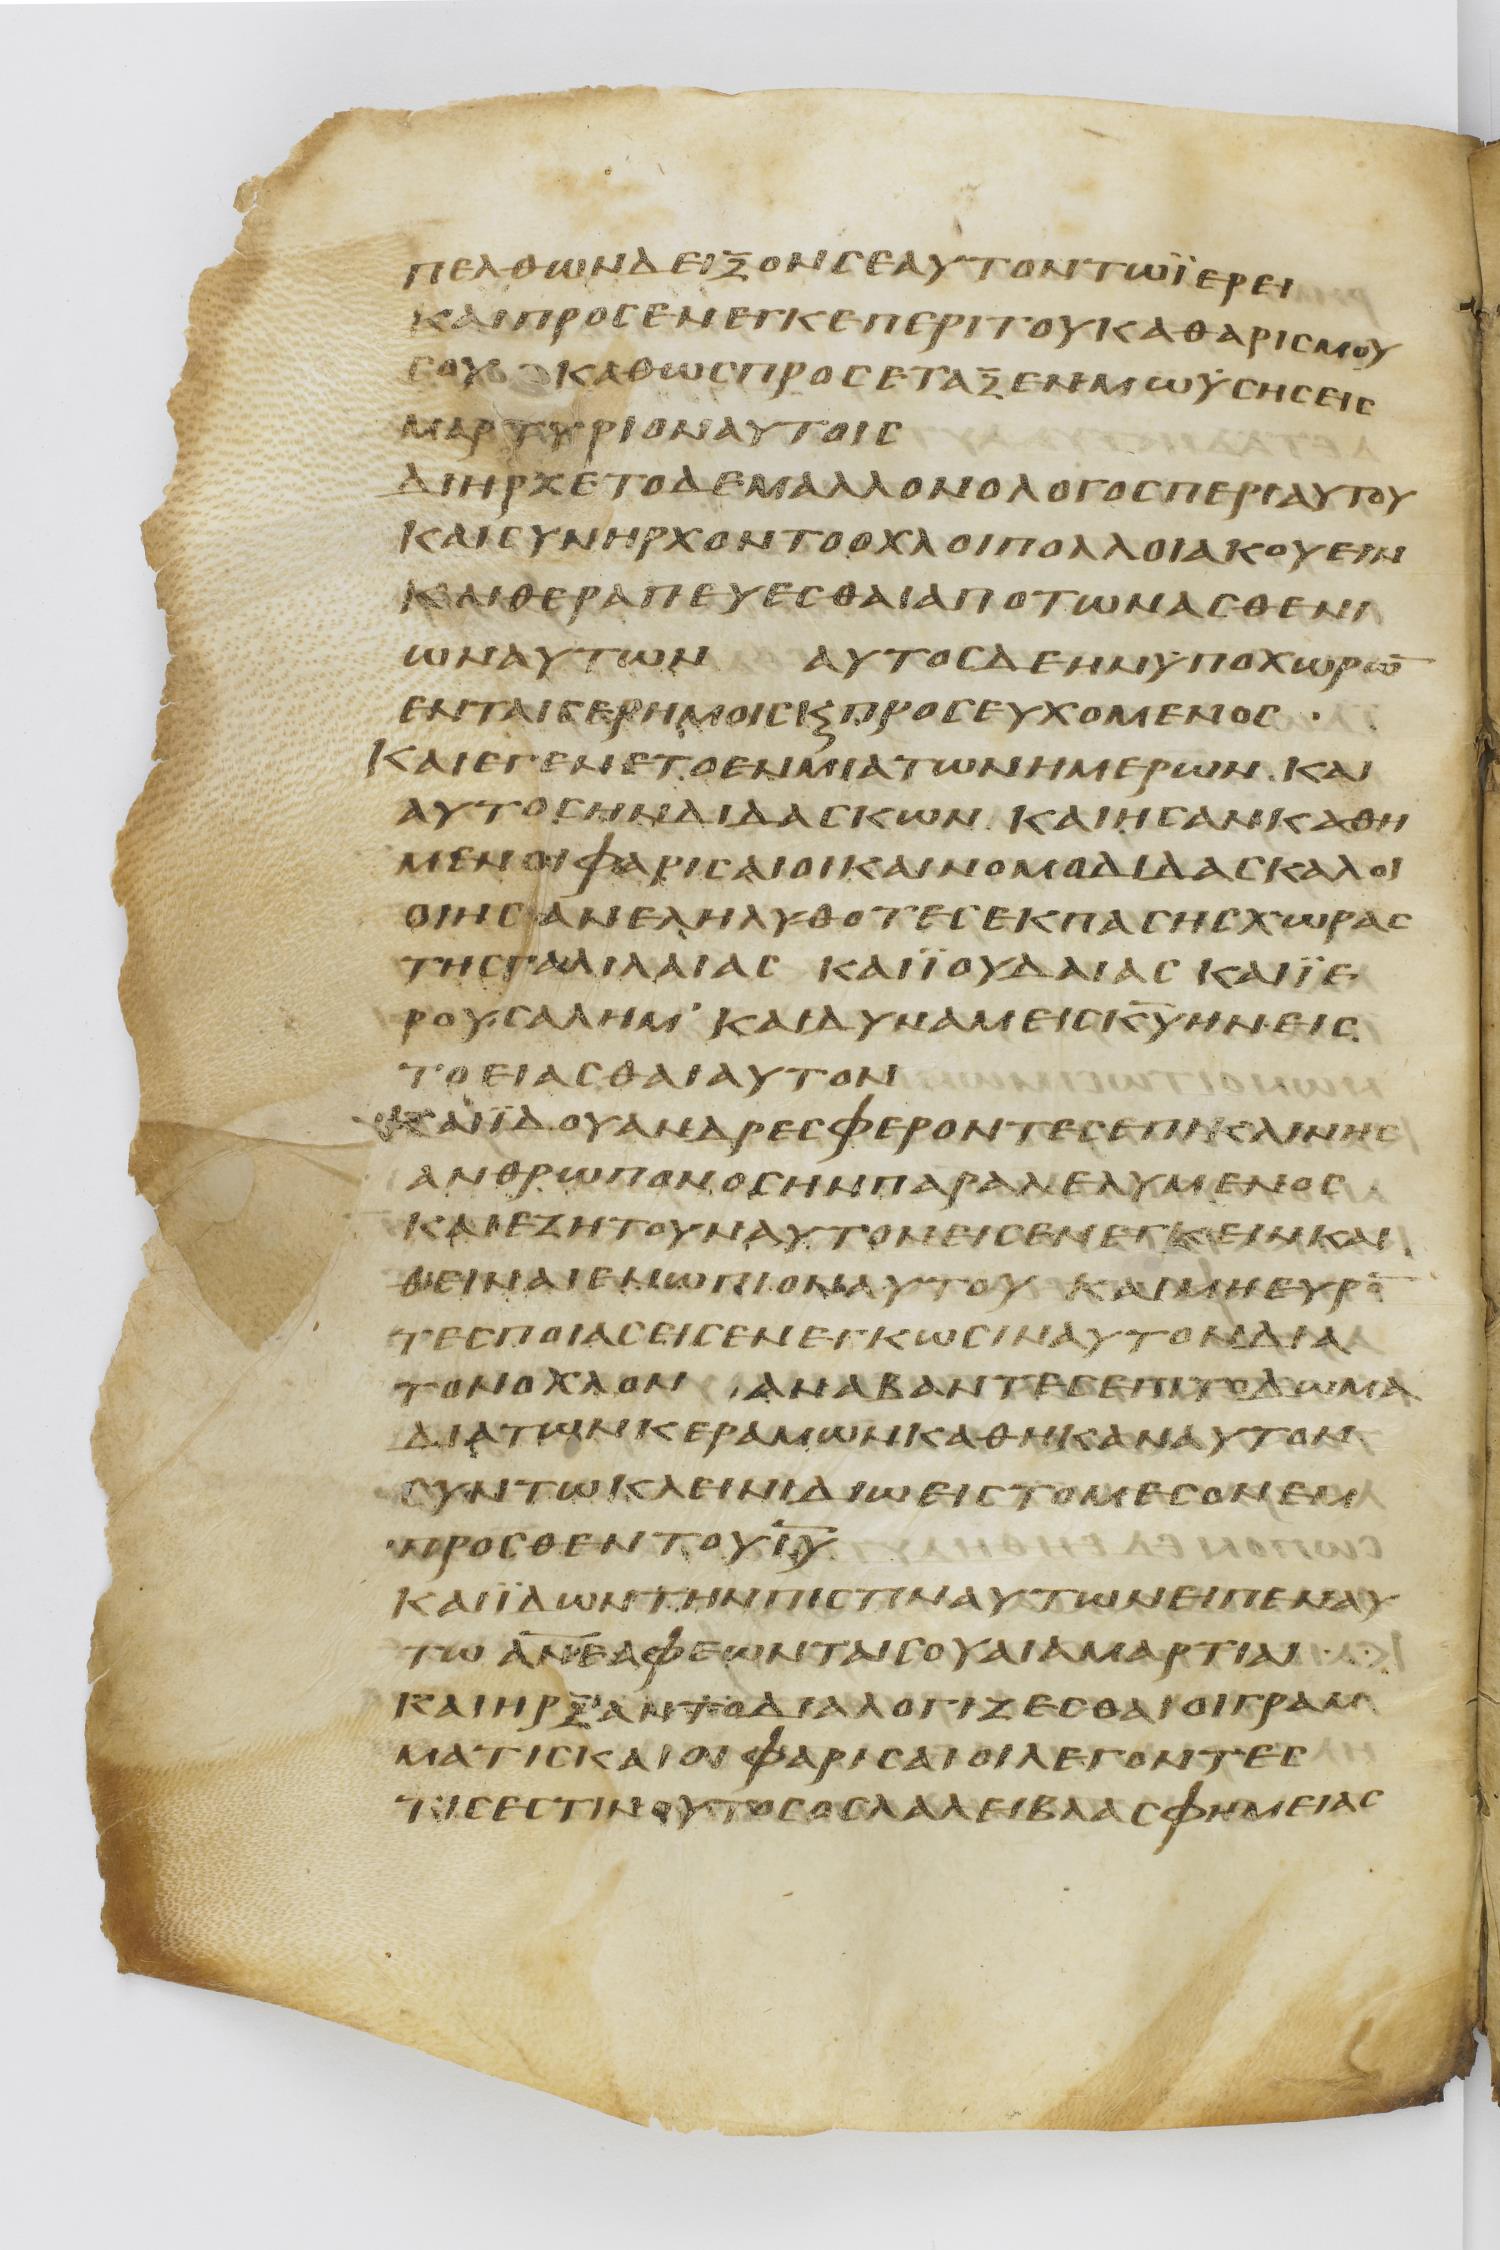 πελθωνδειξονσεαυτοντωϊερει
καιπροσενεγκεπεριτουκαθαρισμου
σου καθωσπροσεταξενμωϋσησεισ
μαρτυριοναυτοισ
διηρχετοδεμαλλονολογοσπεριαυτου
καισυνηρχοντοοχλοιπολλοιακουειν
καιθεραπευεσθαιαποτωνασθενι
ωναυτων αυτοσδεηνϋποχωρω̅
ενταισερημοισκ̣προσευχομενοσ·
καιεγενετοενμιατωνημερων και
αυτοσηνδιδασκων καιησανκαθη
μενοιφαρισαιοικαινομοδιδασκαλοι
οιησανεληλυθοτεσεκπασησχωρασ
τησγαλιλαιασ καιϊουδαιασ καιϊε
ρουσαλημ' καιδυναμεισκ̅υ̅ηνεισ
τοειασθαιαυτον
καιϊδουανδρεσφεροντεσεπικλινησ
ανθρωπονοσηνπαραλελυμενοσ
καιεζητουναυτονεισενεγκεινκαι
θειναιενωπιοναυτου καιμηευρο̅
τεσποιασεισενεγκωσιναυτονδια
τονοχλον αναβαντεσεπιτοδωμα
διατωνκεραμωνκαθηκαναυτον
συντωκλεινιδιωειστομεσονεμ
προσθεντουι̅υ̅
καιϊδωντηνπιστιναυτωνειπεναυ
τωα̅ν̅ε̅αφεωνταισουαιαμαρτιαι·
καιηρξαντοδιαλογιζεσθαιοιγραμ
ματισκαιοιφαρισαιοιλεγοντεσ
τισεστινουτοσοσλαλειβλασφημειασ